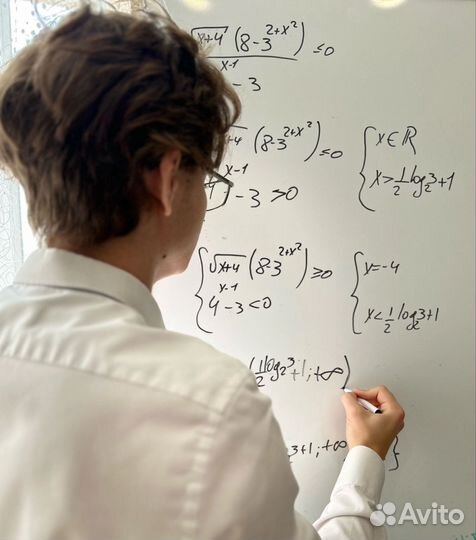 √x+4 (8-3^{2+x²}) ≤0
x-1
- 3
(8-3^{2+x²}) ≤0 { x∈ℝ
x-1
-3>0 x>½log₂3+1
{ √x+4 (8-3^{2+x²}) ≥0 { x=-4
4^{x-1}-3<0 x<½log₂3+1
(½log₂3+1;+∞)
3+1;+∞ }
Avito